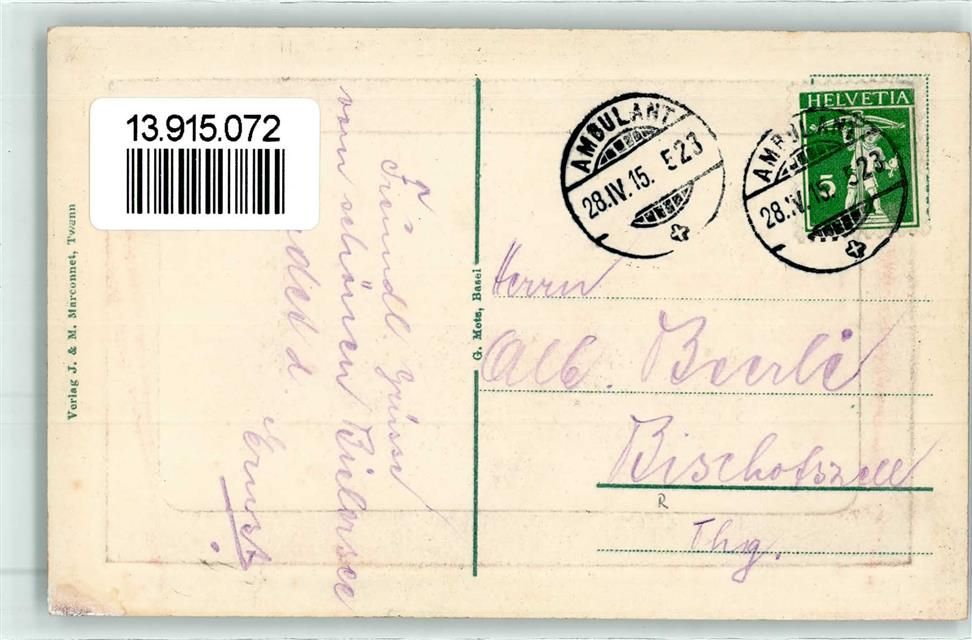 13.915.072
Verlag J. & M. Marconnet, Twann
Freundl. Grüsse
vom schönen Bielersee
d.
Ernst.
G. Metz, Basel
AMBULANT
28.IV.15. 523
HELVETIA
5
AMBULANT
28.IV.15. 523
Herrn
Alb. Beerli
Bischofszell
R
Thg.